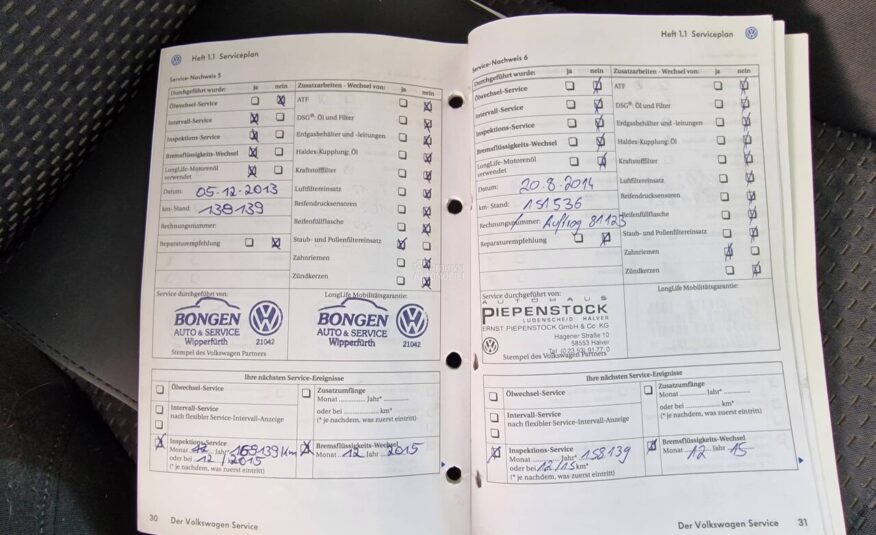 Heft 1.1 Serviceplan
Service-Nachweis 5
Durchgeführt wurde: ja nein
Ölwechsel-Service
Intervall-Service
Inspektions-Service
Bremsflüssigkeits-Wechsel
LongLife-Motorenöl
verwendet
Datum: 05.12.2013
km-Stand: 139139
Rechnungsnummer:
Reparaturempfehlung
Zusatzarbeiten - Wechsel von: ja nein
ATF
DSG®: Öl und Filter
Erdgasbehälter und -leitungen
Haldex-Kupplung: Öl
Kraftstofffilter
Luftfiltereinsatz
Reifendrucksensoren
Reifenfüllflasche
Staub- und Pollenfiltereinsatz
Zahnriemen
Zündkerzen
Service durchgeführt von:
BONGEN
AUTO & SERVICE
Wipperfürth
21042
Stempel des Volkswagen Partners
LongLife Mobilitätsgarantie:
BONGEN
AUTO & SERVICE
Wipperfürth
21042
Stempel des Volkswagen Partners
Ihre nächsten Service-Ereignisse
Ölwechsel-Service
Intervall-Service
nach flexibler Service-Intervall-Anzeige
Inspektions-Service
Monat 12 Jahr* 169139 Km
oder bei 12 / 2015
(* je nachdem, was zuerst eintritt)
Zusatzumfänge
Monat Jahr*
oder bei km*
(* je nachdem, was zuerst eintritt)
Bremsflüssigkeits-Wechsel
Monat 12 Jahr 2015
30 Der Volkswagen Service
Heft 1.1 Serviceplan
Service-Nachweis 6
Durchgeführt wurde: ja nein
Ölwechsel-Service
Intervall-Service
Inspektions-Service
Bremsflüssigkeits-Wechsel
LongLife-Motorenöl
verwendet
Datum: 20.8.2014
km-Stand: 151536
Rechnungsnummer: Auftrag 81123
Reparaturempfehlung
Zusatzarbeiten - Wechsel von: ja nein
ATF
DSG®: Öl und Filter
Erdgasbehälter und -leitungen
Haldex-Kupplung: Öl
Kraftstofffilter
Luftfiltereinsatz
Reifendrucksensoren
Reifenfüllflasche
Staub- und Pollenfiltereinsatz
Zahnriemen
Zündkerzen
Service durchgeführt von:
AUTOHAUS
PIEPENSTOCK
LÜDENSCHEID HALVER
ERNST PIEPENSTOCK GmbH & Co KG
Hagener Straße 10
58553 Halver
Tel (0 23 53) 91 77 0
Stempel des Volkswagen Partners
LongLife Mobilitätsgarantie:
Ihre nächsten Service-Ereignisse
Ölwechsel-Service
Intervall-Service
nach flexibler Service-Intervall-Anzeige
Inspektions-Service
Monat Jahr* 158139
oder bei 12/15 km*
(* je nachdem, was zuerst eintritt)
Zusatzumfänge
Monat Jahr*
oder bei km*
(* je nachdem, was zuerst eintritt)
Bremsflüssigkeits-Wechsel
Monat 12 Jahr 15
Der Volkswagen Service 31